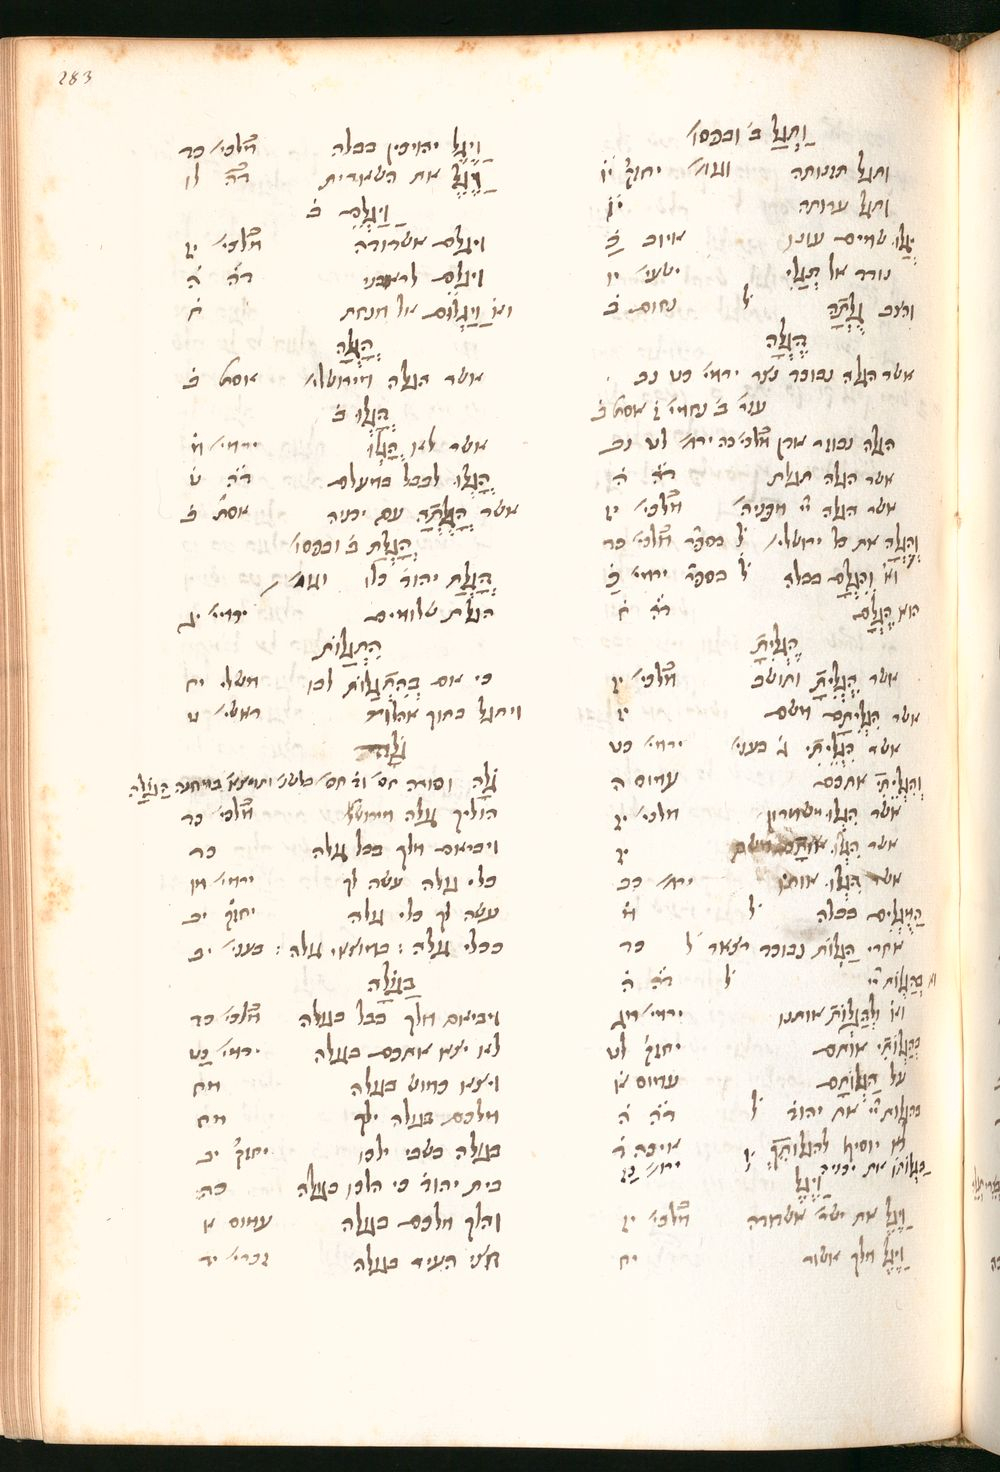 283
וַתְגַל ב׳ ובפסו׳
ותגל תזנותה ועוד׳ יחזק׳ יֹו
ותגל ערותה יֹו
יְגַלוּ שמים עונו איוב כֹ
גורר אל תְגַלִי ישעי׳ יו
והצב גֻלְתָה ל׳ נחום ב
הֶגְלָה
אשר הגלה נבוכד נצר ירמי׳ כט נב
עזר׳ ב׳ נחמי׳ ז אסת׳ ב
הגלה נבוזר ארן מלכי׳ כה ירמ׳ לט נב
אשר הגלה תגלת ד״ה ה
אשר הגלה יי׳ מפניה׳ מלכי׳ יז
וְהִגְלָה את כל ירושל׳ ל׳ בספ׳ר מלכי׳ כד
וא׳ וְהִגְלָם בבלה ל׳ בספ׳ר ירמי׳ כ
הוא הֶגְלָם ד״ה ח
הִגְלִיתָ
אשר הִגְלִיתָ ותושב מלכי׳ יז
אשר הִגְלִיתֶם משם יז
אשר הִגְלֵיתִי ג׳ בעני׳ ירמי׳ כט
וְהִגְלֵיתִי אתכם עמוס ה
אשר הִגְלוּ משמרון מלכי׳ יז
אשר הִגְלוּ אותם משם יז
אשר הִגְלוּ אותו ירמ׳ כב
הַמֻגְלִים בבלה ל׳ מ
אחרי הַגְלוֹת נבוכד רצאר ל׳ כד
וא׳ בְהַגְלוֹת יי׳ ל׳ ד״ה ה
וא׳ לְהַגְלוֹת אותנו ירמי׳ מג
בְּהַגְלוֹתִי אותם יחזק׳ לט
על הַגְלוֹתָם עמוס א
בהגלות יי׳ את יהוד׳ ל׳ ד״ה ה
לא יוסיף להגלותֵךְ ל׳ איכה ד
בַּגְלוֹתוֹ את יכניה ירמ׳ כז
וַיֶגֶל
וַיֶגֶל את ישר׳ אשורה מלכי׳ יז
וַיֶגֶל מלך אשור יח
וַיֶגֶל יהויכין בבלה מלכי׳ כד
וַיֶגֶל את השארית ד״ה לו
וַיַגְלֵם ב
ויגלם אשרורה מלכי׳ יז
ויגלם לראבני ד״ה ה
וא׳ וַיַגְלוּם אל מנחת ח
הָגְלָה
אשר הגלה מירושל׳ אסת׳ ב
הָגְלוּ ב
אשר לאו הָגְלוּ ירמי׳ מ
הָגְלוּ לבבל במעלם ד״ה ט
אשר הָגְלְתָה עם יכניה אסת׳ ב
הָגְלַת ב׳ ובפסו׳
הָגְלַת יהוד׳ כלו ועוד׳
הגלת שלומים ירמי׳ יג
הִתְגַלוֹת
כי אם בְּהִתְגַלוֹת לבו משלי יח
ויתגל בתוך אהלוה ראשי׳ ט
גֹלָה
גֹלָה וסורה
הוליך גולה מירושל׳ מלכי׳ כד
ויביאם מלך בבל גולה כד
כלי גולה עשה לך ירמי׳ מו
עשה לך כלי גולה יחזק׳ יב
ככלי גולה : כמוצאי גולה : בעני׳ יב
בַּגּוֹלָה
ויביאם מלך בבל בגולה מלכי׳ כד
לאו יצא אתכם בגולה ירמי׳ כט
ויצא כמוש בגולה מח
מלכם בגולה ילך מט
בגולה בשבי ילכו יחזק׳ יב
בית יהוד׳ כי הלכו בגולה כה
והלך מלכם בגולה עמוס א
חצי העיר בגולה זכרי׳ יד